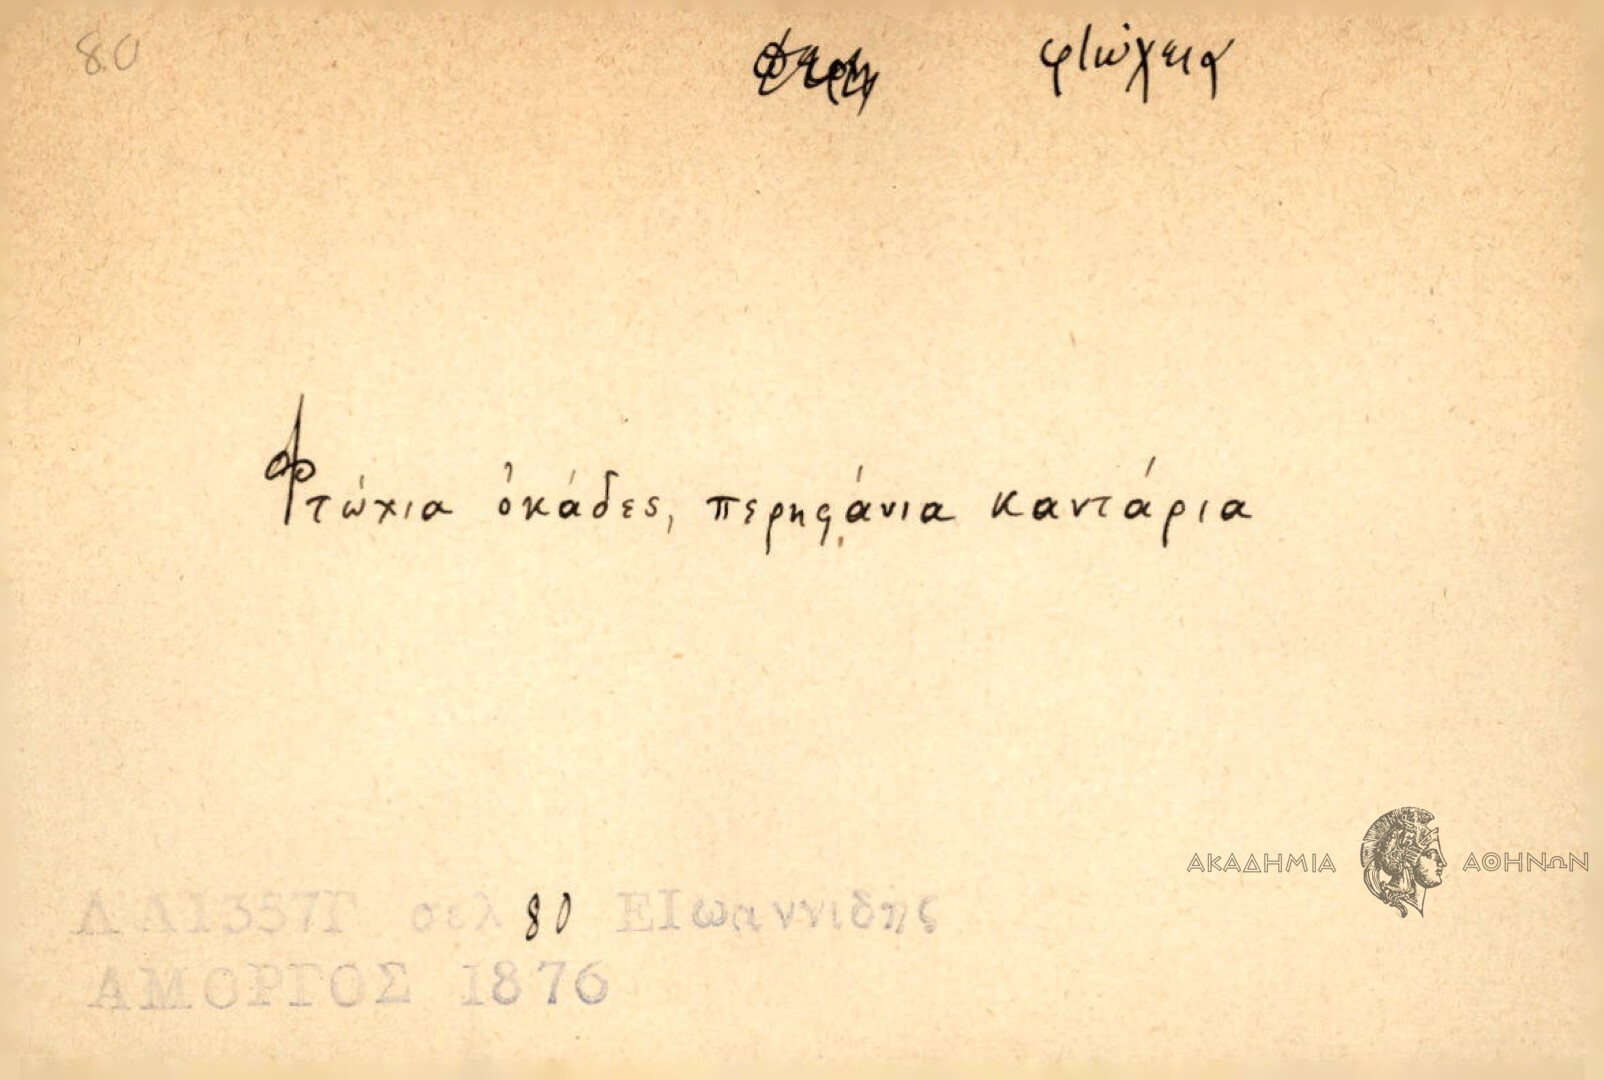 80 φτώχεια
Φτώχια ὀκάδες, περηφάνια καντάρια
ΑΚΑΔΗΜΙΑ ΑΘΗΝΩΝ
ΛΑ1357Γ σελ 80 ΕΙωαννιδης
ΑΜΟΡΓΟΣ 1876